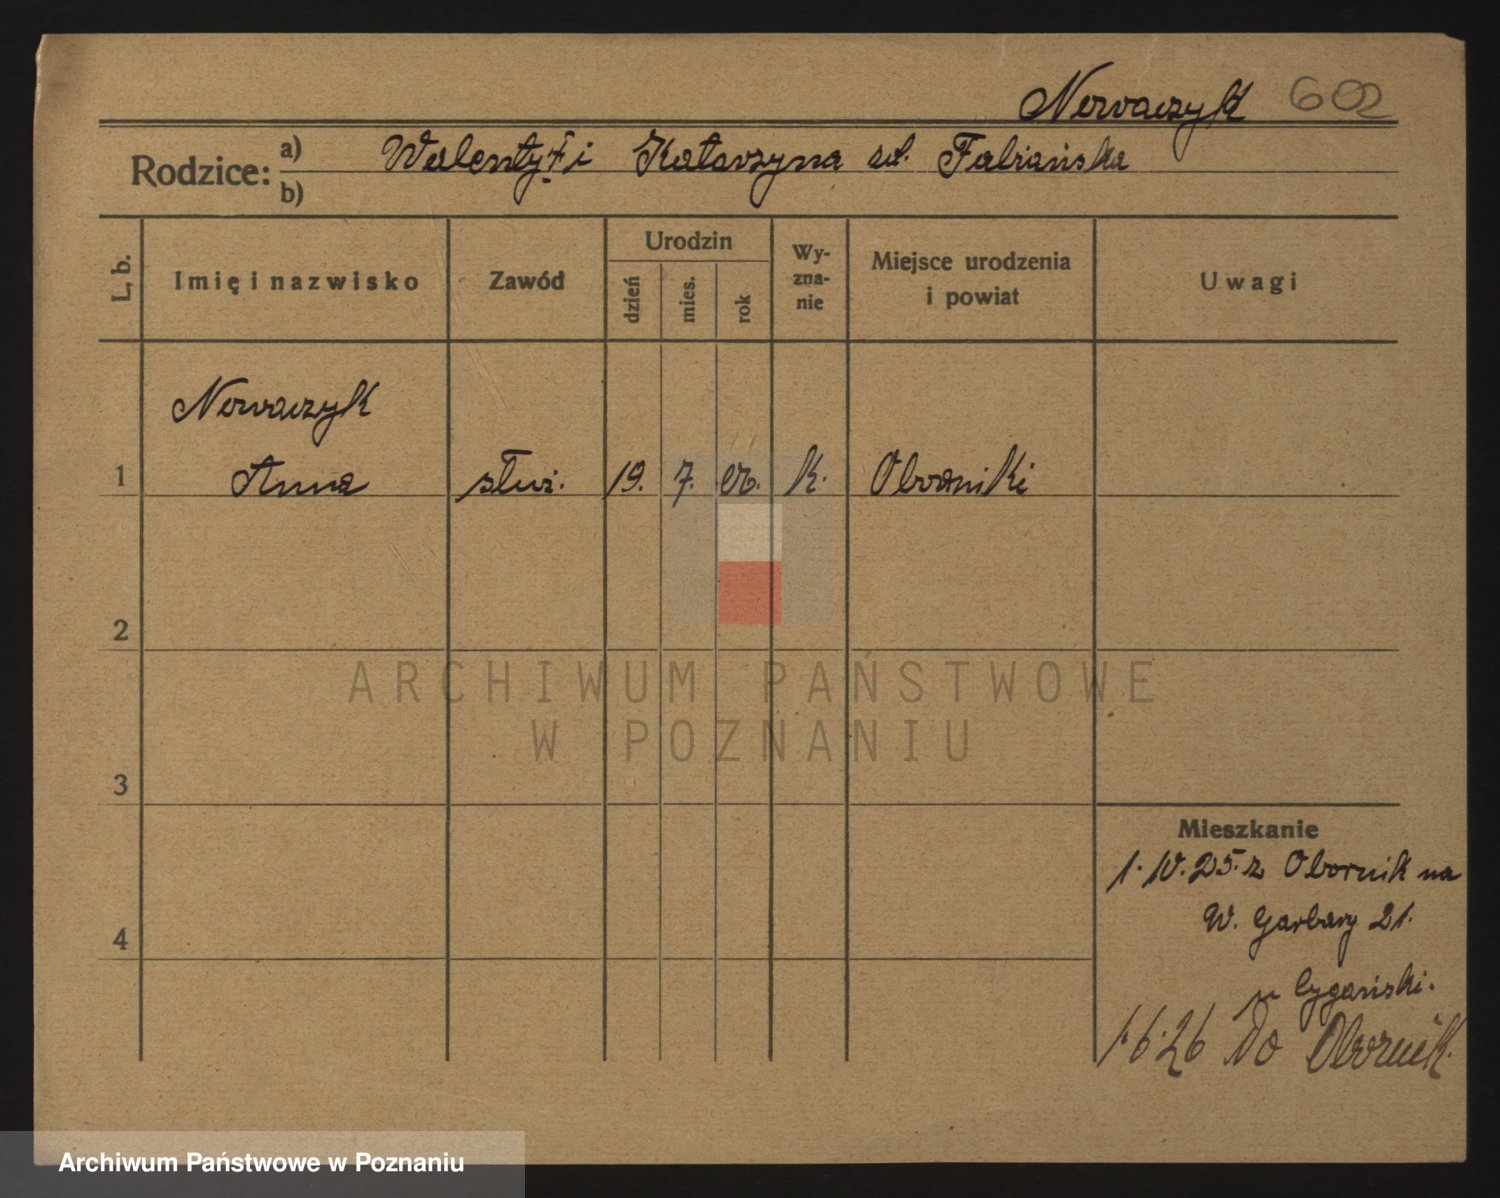 Nowaczyk 602
Rodzice: a) Walenty † i Katarzyna zd. Fabiańska
b)
L. b. Imię i nazwisko Zawód Urodzin Wy-zna-nie Miejsce urodzenia i powiat Uwagi
dzień mies. rok
Nowaczyk
1 Anna służ. 19. 7. k. Oborniki
2
ARCHIWUM PAŃSTWOWE
W POZNANIU
3
Mieszkanie
1. 10. 25. z Obornik na
4 W. Garbary 21.
u Cygański.
1.6.26 do Obornik.
Archiwum Państwowe w Poznaniu